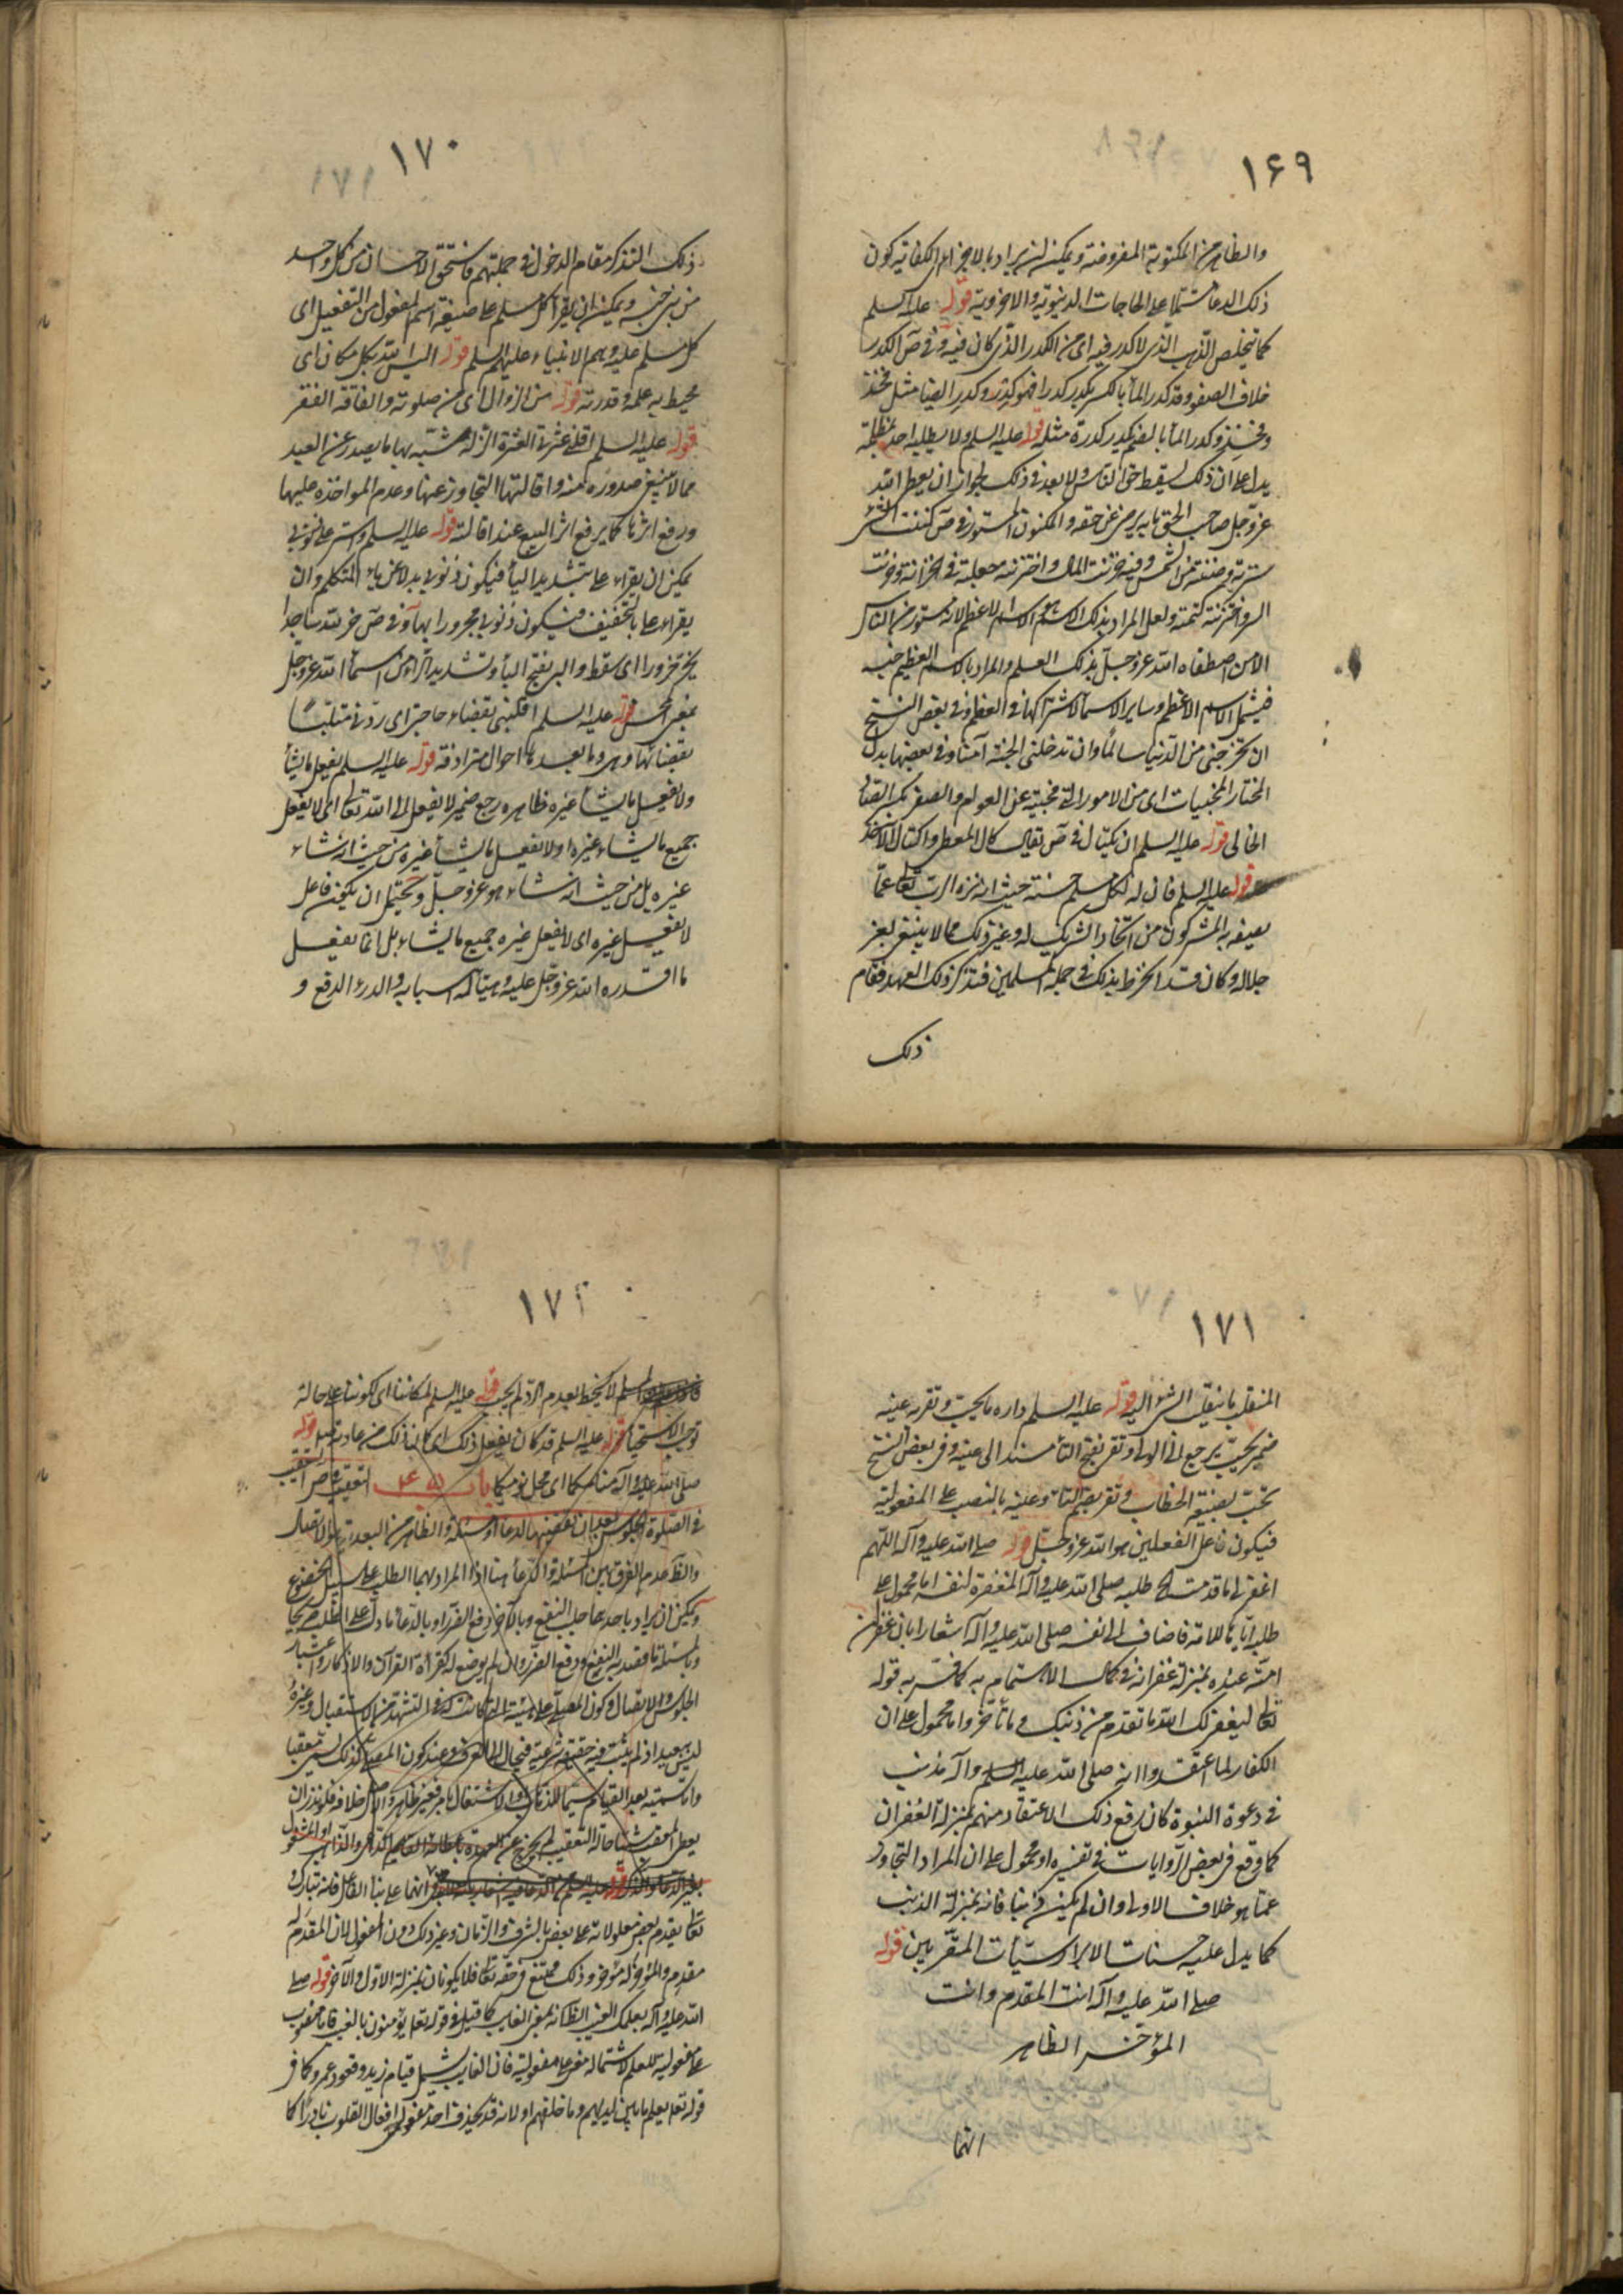 ١۶٩
والظاهر من المكتوبة المفروضة ويمكن ان يراد بالاجزاء الكفاية كون
ذلك الدعاء مشتملا على الحاجات الدنيوية والاخروية قوله عليه السلم
كما يتخلص الذهب الذي لا كدر فيه اي من الكدر الذي كان فيه وفي ص الكدر
خلاف الصفو وقد كدر الماء بالكسر يكدر كدرا فهو كدر وكدر ايضا مثل فخذ
وفخذ وكدر الماء بالضم يكدر كدرة مثله قوله عليه السلم ولا يطلبه احد بمظلمة
يدل على ان ذلك يسقط حق الناس ولا بعد في ذلك لجواز ان يعطي الله
عز وجل صاحب الحق ما به يرضى عن حقه والمكنون المستور في ص كننت الشيء
سترته وصنته من الشمس وفيه خزنت المال واختزنته جعلته في الخزانة وخزنت
السر واختزنته كتمته ولعل المراد بذلك الاسم هو الاسم الاعظم لانه مستور من الناس
الا من اصطفاه الله عز وجل بذلك العلم والمراد بالاسم العظيم جنسه
فيشمل الاسم الاعظم وساير الاسماء لاشتراكها في العظم وفي بعض النسخ
ان تخرجني من الدنيا سالما وان تدخلني الجنة آمنا وفي بعضها بدل
المختار المخبيات اي من الامور التي مخبية عن العوام والصفر بكسر الصاد
الخالي قوله عليه السلم ان يكتال في ص يقال كال المعطي واكتال الآخذ
قوله عليه السلم فان له لكل مسلم حسنة حيث انه نزه الرب تعالى عما
يصفه به المشركون من اتخاذ الشريك له وغير ذلك مما لا ينبغي بعز
جلاله وكان قد انخرط بذلك في جملة المسلمين فتذكر ذلك العهد فقام
ذلك
١٧٠
ذلك التذكر مقام الدخول في جملتهم فاستحق الاحسان من كل واحد
من بني جنسه ويمكن ان يقرأ كل مسلم على صيغة اسم المفعول من التفعيل اي
كل مسلم عليه وهم الانبياء عليهم السلم قوله اليس الله بكل مكان اي
محيط به علمه وقدرته قوله من الزوال اي من صلوته والفاقة الفقر
قوله عليه السلم اقلني عثرتي العثرة الزلة شبّه بها ما يصدر عن العبد
مما لا ينبغي صدوره منه واقالتها التجاوز عنها وعدم المواخذة عليها
ورفع اثرها كما يرفع اثر البيع عند اقالته قوله عليه السلم واستر علي ذنوبي
يمكن ان يقرأ علي بتشديد الياء فيكون ذنوبي بدلا عن ياء المتكلم وان
يقرأ على بالتخفيف فيكون ذنوبي مجرورا بها وفي ص خر لله ساجدا
يخر خرورا اي سقط والبر بفتح الباء وتشديد الراء من اسماء الله عز وجل
بمعنى المحسن قوله عليه السلم اقلبني بقضاء حاجتي اي ردني متلبسا
بقضائها وهي وما بعدها احوال مترادفة قوله عليه السلم يفعل ما يشاء
ولا يفعل ما يشاء غيره ظاهره رجع ضمير لا يفعل الى الله تعالى اي لا يفعل
جميع ما يشاء غيره او لا يفعل ما يشاء غيره من حيث انه شاء
غيره بل من حيث انه شاء هو عز وجل ويحتمل ان يكون فاعل
لا يفعل غيره اي لا يفعل غيره جميع ما يشاء بل انما يفعل
ما اقدره الله عز وجل عليه وهيأ له اسبابه والدرء الدفع و
١٧١
المنقلب ما ينقلب الشيء اليه قوله عليه السلم داره ما يحب وتقر عينه
ضمير يحب يرجع الى الولي وتقر بفتح التاء مسند الى عينه وفي بعض النسخ
تحب بصيغة الخطاب وتقر بضم التاء وعينه بالنصب على المفعولية
فيكون فاعل الفعلين هو الله عز وجل قوله صلى الله عليه وآله اللهم
اغفر لي ما قدمت الخ طلبه صلى الله عليه وآله المغفرة لنفسه اما محمول على
طلبه اياها للامة فاضاف الى نفسه صلى الله عليه وآله اشعارا بان غفران
امته عنده بمنزلة غفرانه في كمال الاهتمام به كما فسر به قوله
تعالى ليغفر لك الله ما تقدم من ذنبك وما تأخر واما محمول على ان
الكفار لما اعتقدوا انه صلى الله عليه السلم وآله مذنب
في دعوة النبوة كان رفع ذلك الاعتقاد منهم بمنزلة الغفران
كما وقع في بعض الروايات في تفسيره او محمول على ان المراد التجاوز
عما هو خلاف الاولى وان لم يكن ذنبا فانه بمنزلة الذنب
كما يدل عليه حسنات الابرار سيئات المقربين قوله
صلى الله عليه وآله انت المقدم وانت
المؤخر الظاهر
انهما
١٧٢
لا يخيط بعدم الرد لم يجب قوله عليه السلم لمكاننا اي لكوننا على حالة
توجب الاستحياء قوله عليه السلم قد كان يفعل ذلك اي كان ذلك من عادته قوله
صلى الله عليه وآله منامكما اي محل نومكما باب التعقيب
في الصلوة الجلوس بعد ان يقضيها لدعاء او مسئلة والظاهر من البعدية الاتصال
والظ عدم الفرق بين المسئلة والدعاء هنا اذا المراد بهما الطلب على سبيل الخضوع
ويمكن ان يراد باحدهما جلب النفع وبالآخر دفع الضرر او بالدعاء ما دل على الطلب صريحا
وبالمسئلة ما قصد به النفع ودفع الضرر وان لم يوضع له كقرأة القرآن والاذكار واعتبار
الجلوس والاتصال وكون المصلي على هيئته التي كانت له في التشهد من الاستقبال وغيره
ليس ببعيد اذ لم يثبت فيه حقيقة شرعية فيحال الى العرف وعند كون المصلي كذلك يسمى معقبا
يقدم بعض معلولاته على بعض بالشرف والزمان وغير ذلك دون المفعول لان المقدم له
مقدم والمؤخر له مؤخر وذلك ممتنع في حقه تعالى فلا يكونان بمنزلة الاول والآخر قوله صلى
الله عليه وآله بعلمك الغيب الظ انه بمعنى الغايب كما قيل في قوله تعالى يؤمنون بالغيب فاما منصوب
على مفعولية للعلم لاشتماله على مفعوليه فان الغايب يشمل قيام زيد وقعود عمرو كما في
قوله تعالى يعلم ما بين ايديهم وما خلفهم او لانه قد يحذف احد مفعولي افعال القلوب نادرا كما